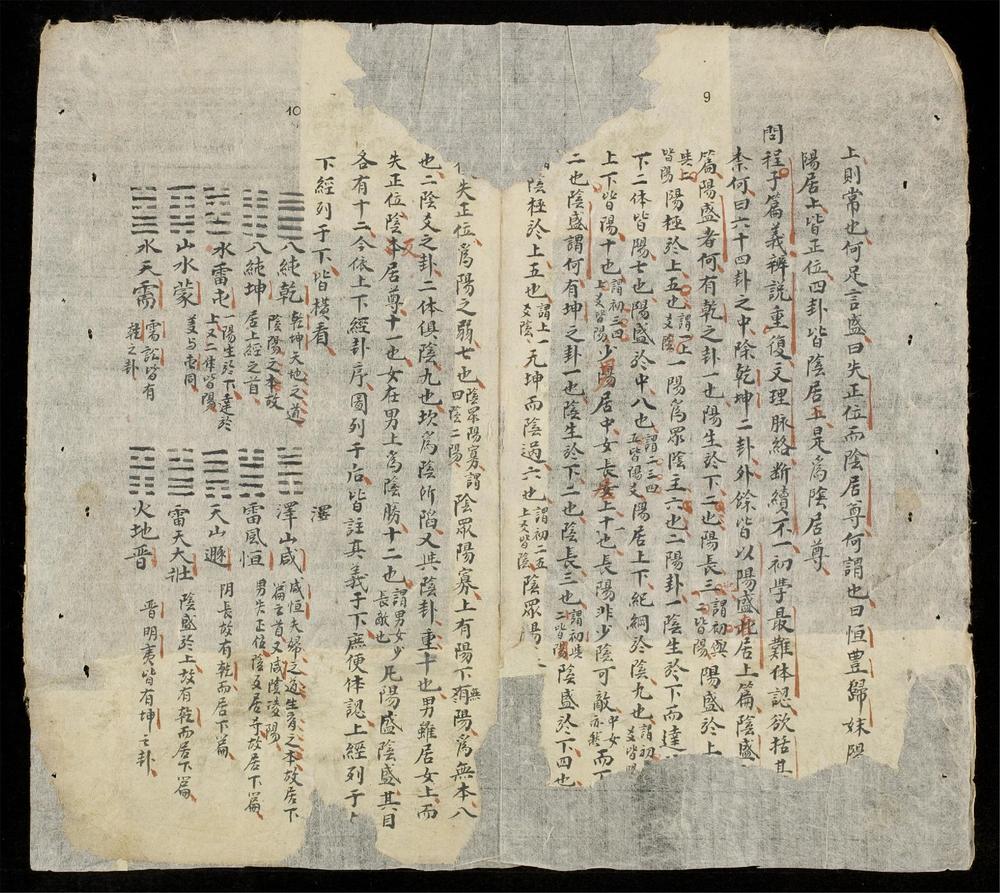 9
上則常也何足言盛曰失正位而陰居尊何謂也曰恒豊歸妹陽
陽居上皆正位四卦皆陰居上是爲陰居尊
問程子篇義辨説重復文理脉絡斷續不一初學最難体認欲括其
柰何曰六十四卦之中除乾坤二卦外餘皆以陽盛此居上篇陰盛
篇陽盛者何有乾之卦一也陽生於下二也陽長三謂初與二皆陽陽盛於上
皆陽陽極於上五也謂上一爻陰一陽爲眾陰主六也二陽卦一陰生於下而達
下二体皆陽七也陽盛於中八也謂二三四五皆陽爻陽居上下紀綱於陰九也謂初
上下皆陽十也謂初二四上爻皆陽少陽居中女長上十一也長陽非少陰可敵中女亦然而下
二也陰盛謂何有坤之卦一也陰生於下二也陰長三也謂初與二皆陰陰盛於下四也
陰極於上五也謂上一爻陰无坤而陰過六也謂初二五上爻皆陰陰眾陽
失正位爲陽之弱七也陰眾陽寡謂四陰二陽陰眾陽寡上有陽下無陽爲無本八
也二陰爻之卦二体俱陰九也坎爲陰所陷又與陰卦重十也男雖居女上而
失正位陰反居尊十一也女在男上爲陰勝十二也謂男女少長敵也凡陽盛陰盛其目
各有十二今依上下經卦序圖列于后皆註其義于下庶便体認上經列于
下經列于下皆橫看
10
八純乾 乾坤天地之道陰陽之本故
八純坤 居上經之首
水雷屯 一陽生於下達於上又二体皆陽
山水蒙 義与屯同
水天需 需訟皆有乾之卦
澤
澤山咸 咸恒夫婦之道生育之本故居下篇之首又咸陰陵陽
雷風恒 男失正位陰爻居尊故居下篇
天山遯 阴長故有乾而居下篇
雷天大壯 陰盛於上故有乾而居下篇
火地晋 晋明夷皆有坤之卦